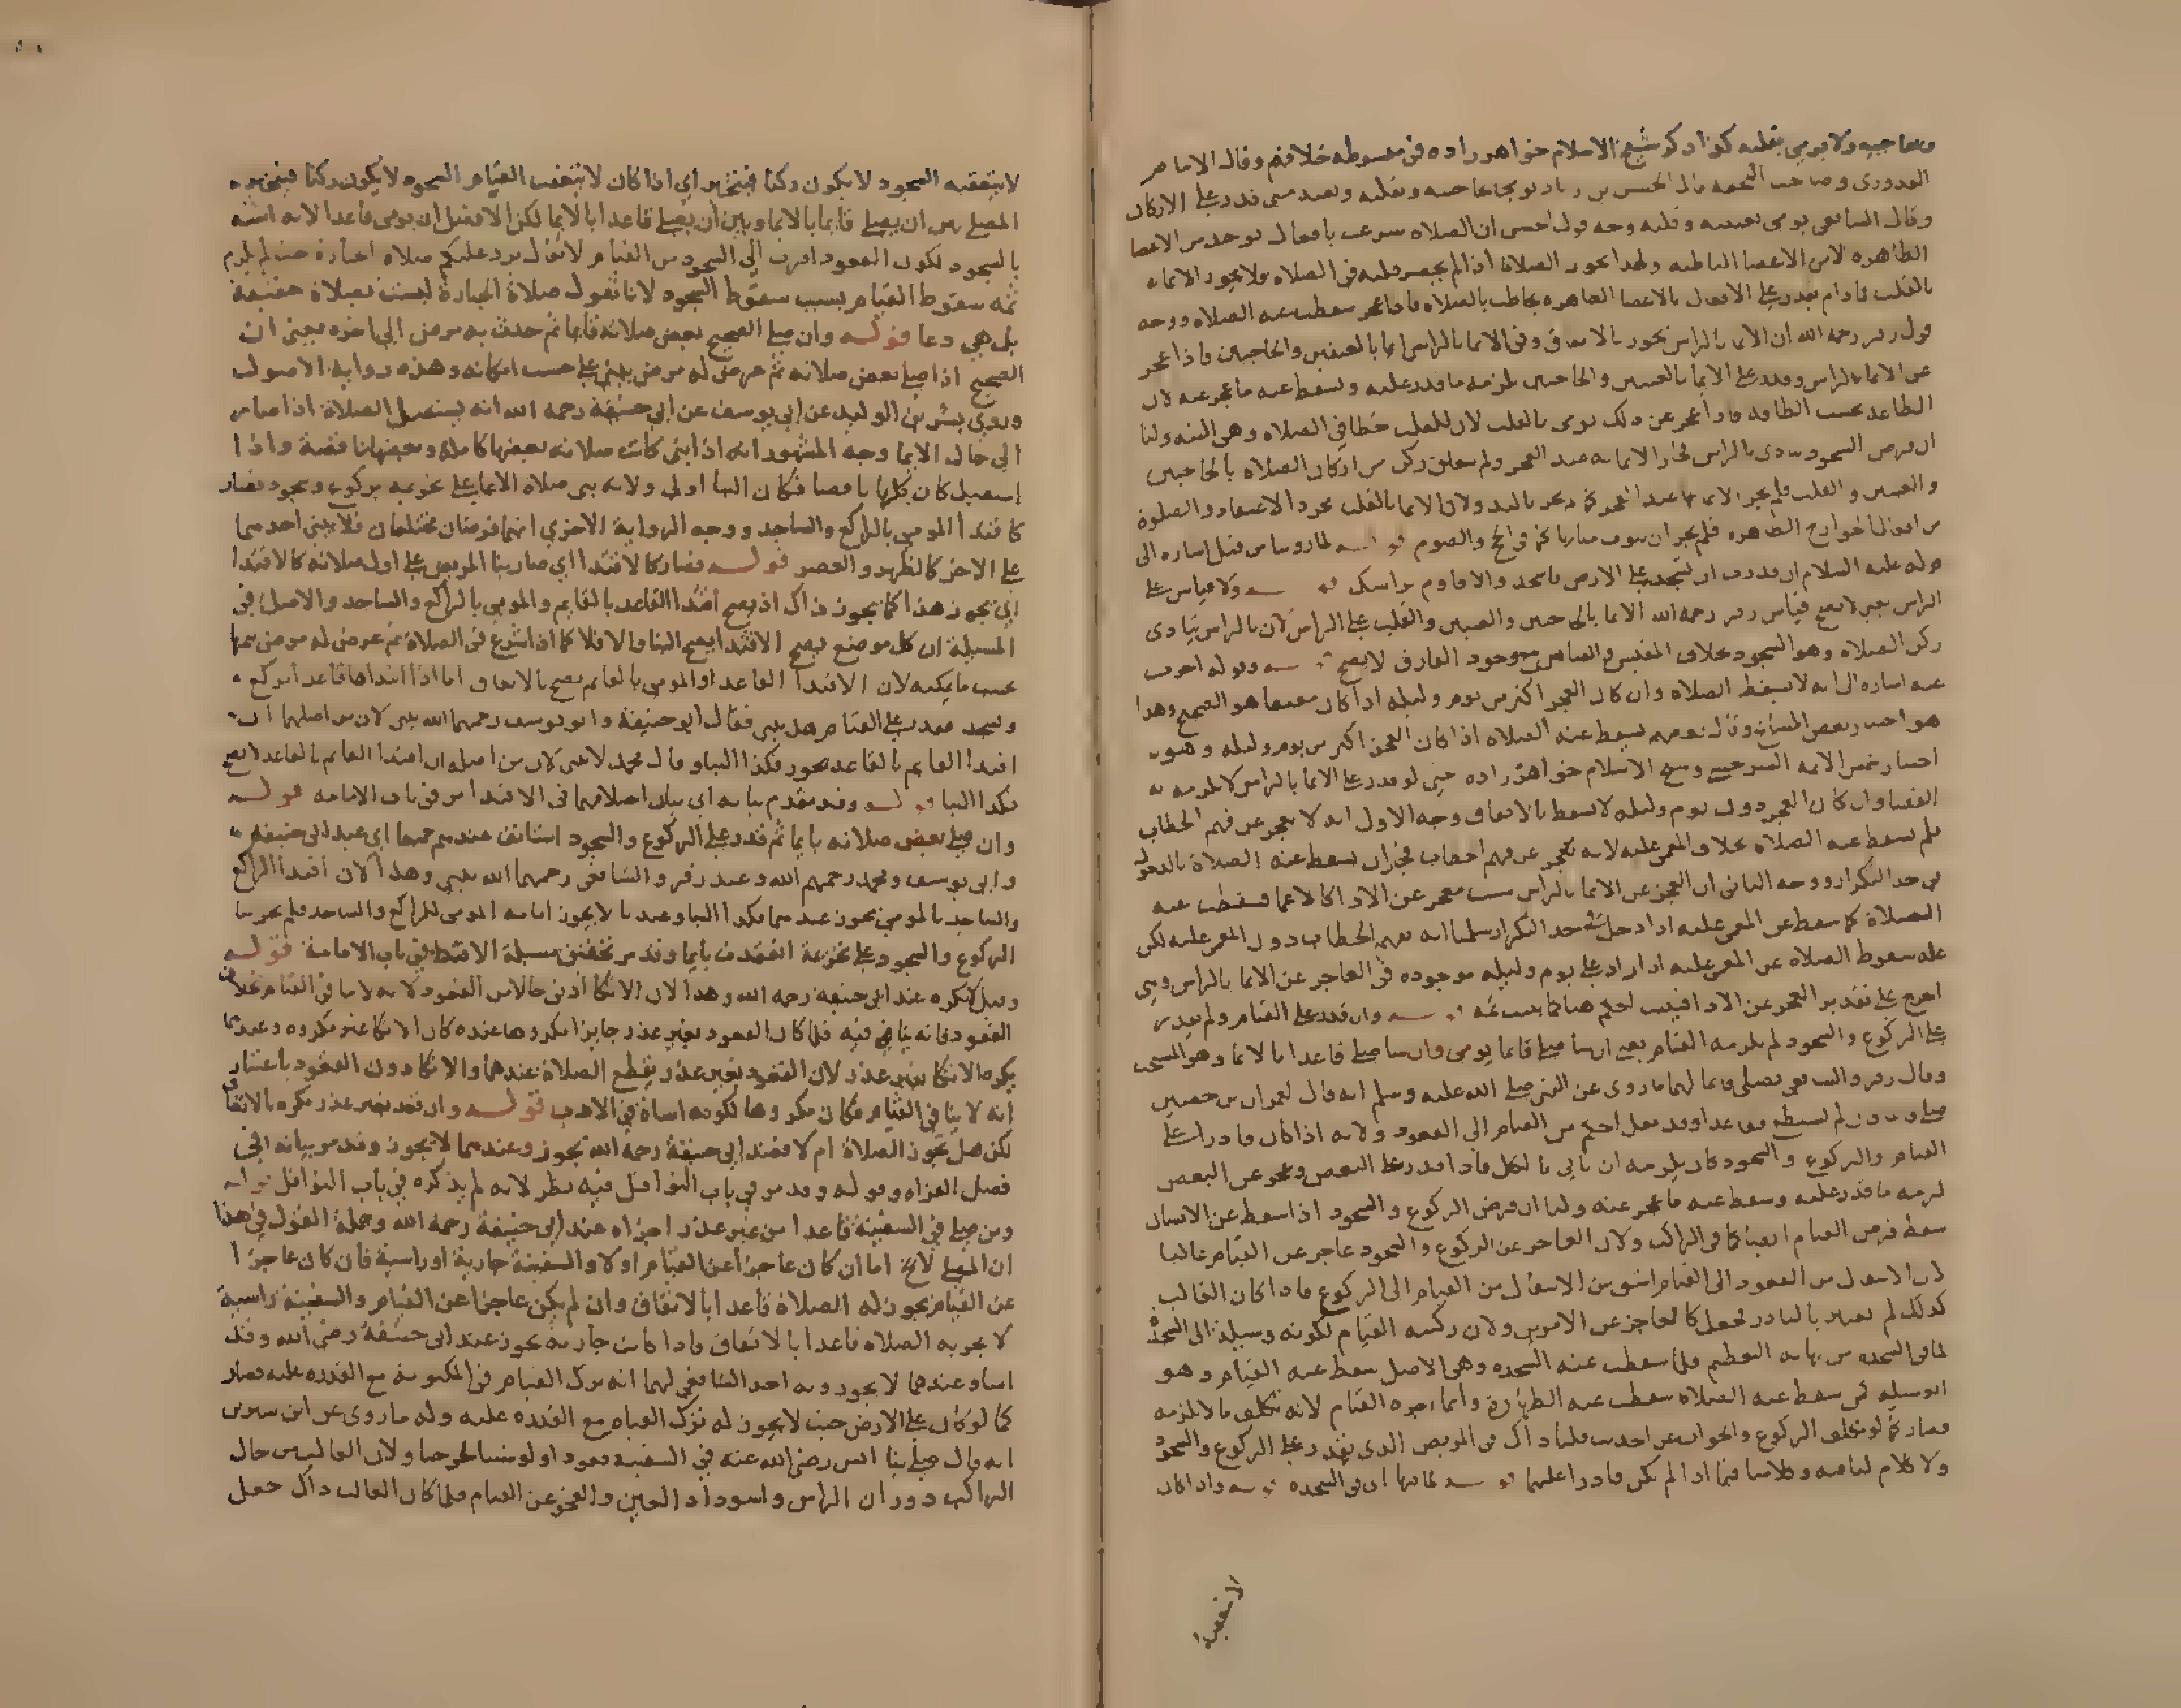 وحاجبيه ولا يومي بقلبه كذا ذكر شيخ الاسلام خواهر زاده في مبسوطه خلافهم وقال الامام
القدوري وصاحب التحفة قال الحسن بن زياد يومي بحاجبيه وبقلبه ويعيد متى قدر على الاركان
وقال الشافعي يومي بعينيه وقلبه وجه قول الحسن ان الصلاة شرعت بافعال توجد من الاعضا
الظاهره لا من الاعضا الباطنه ولهذا تجوز الصلاة اذا لم يحضر قلبه في الصلاه ولا يجوز الايماء
بالقلب مادام يقدر على الافعال بالاعضا الظاهره يخاطب بالصلاه فاذا عجز سقطت عنه الصلاه ووجه
قول زفر رحمه الله ان الايما بالراس يجوز بالاتفاق وفي الايما بالراس ايما بالعينين والحاجبين فاذا عجز
عن الايما بالراس وقدر على الايما بالعينين والحاجبين يلزمه ما قدر عليه ويسقط عنه ما عجز عنه لان
الطاعه بحسب الطاقه فاذا عجز عن ذلك يومي بالقلب لان للقلب حظا في الصلاه وهي النيه ولنا
ان فرض السجود يتادى بالراس فجاز الايما به عند العجز ولم يتعلق ركن من اركان الصلاه بالحاجبين
والعينين والقلب فلم يجز الايما بها عند العجز كما لم يجز باليد ولان الايما بالقلب مجرد الاعتقاد والصلوة
من افعال الجوارح الظاهره فلم يجز ان ينوب منابها كما في الحج والصوم قوله لما روينا من قبل اشاره الى
قوله عليه السلام ان قدرت ان تسجد على الارض فاسجد والا فاوم براسك قوله ولا قياس على
الراس يعني لا يصح قياس زفر رحمه الله الايما بالحاجبين والعينين والقلب على الراس لان بالراس يتادى
ركن الصلاه وهو السجود بخلاف المقيس والقياس مع وجود الفارق لا يصح قوله وقوله اخرت
عنه اشاره الى انه لا يسقط الصلاه وان كان العجز اكثر من يوم وليله اذا كان مفيقا هو الصحيح وهذا
هو اختيار بعض المشايخ وقال بعضهم يسقط عنه الصلاه اذا كان العجز اكثر من يوم وليله وهو
اختيار شمس الايمه السرخسي وشيخ الاسلام خواهر زاده حتى لو قدر على الايما بالراس لا يلزمه
القضا وان كان العجز دون يوم وليله لا يسقط بالاتفاق وجه الاول انه لا يعجز عن فهم الخطاب
فلم يسقط عنه الصلاه بخلاف المغمى عليه لانه يعجز عن فهم الخطاب فجاز ان يسقط عنه الصلاة بالدخول
في حد التكرار ووجه الثاني ان العجز عن الايما بالراس معجز عن الادا كالاغما فسقطت عنه
الصلاة كما يسقط عن المغمى عليه اذا دخل في حد التكرار سلمنا انه يفهم الخطاب دون المغمى عليه لكن
علة سقوط الصلاه عن المغمى عليه اذا زاد على يوم وليله موجوده في العاجز عن الايما بالراس وهي
الحرج على تقدير العجز عن الادا فيثبت الحكم هنا كما يثبت ثمه قوله وان قدر على القيام ولم يقدر
على الركوع والسجود لم يلزمه القيام يعني ان شا صلى قايما يومي وان شا صلى قاعدا بالايما وهو المستحب
وقال زفر والشافعي يصلي قايما لهما ما روي عن النبي صلى الله عليه وسلم انه قال لعمران بن حصين
صل قايما فان لم تستطع فقاعدا وقد نقل الحكم من القيام الى القعود ولانه اذا كان قادرا على
القيام والركوع والسجود كان يلزمه ان ياتي بالكل فاذا قدر على البعض وعجز عن البعض
لزمه ما قدر عليه وسقط عنه ما عجز عنه ولنا ان فرض الركوع والسجود اذا سقط عن الانسان
سقط فرض القيام ايضا كما في الراكب ولان العاجز عن الركوع والسجود عاجز عن القيام غالبا
لان الانتقال من القعود الى القيام اشق من الانتقال من القيام الى الركوع فاذا كان الغالب
كذلك لم يعتبر بالنادر فجعل كالعاجز عن الامرين ولان ركنية القيام لكونه وسيلة الى السجدة
لما في السجده من نهاية التعظيم فلما سقطت عنه السجده وهي الاصل سقط عنه القيام وهو
الوسيله كمن سقط عنه الصلاه سقطت عنه الطهارة وانما اجزاه القيام لانه تكلف ما لا يلزمه
فصار كما لو تكلف الركوع والجواب عن الحديث قلنا ذاك في المريض الذي يقدر على الركوع والسجود
ولا كلام لنا فيه وكلامنا فيما اذا لم يكن قادرا عليهما قوله لما فيها اي في السجده قوله واذا كان
لا يتعقبه
لا يتعقبه السجود لا يكون ركنا فيتخير اي اذا كان لا يتعقب القيام السجود لا يكون ركنا فيتخير
المصلي بين ان يصلي قايما بالايما وبين ان يصلي قاعدا بالايما لكن الافضل ان يومي قاعدا لانه اشبه
بالسجود لكون القعود اقرب الى السجود من القيام لا يقال يرد عليكم صلاه الجنازة حيث لم يلزم
ثمه سقوط القيام بسبب سقوط السجود لانا نقول صلاة الجنازة ليست بصلاة حقيقة
بل هي دعا قوله وان صلى الصحيح بعض صلاته قايما ثم حدث به مرض الى اخره يعني ان
الصحيح اذا صلى بعض صلاته ثم عرض له مرض يبني على حسب امكانه وهذه رواية الاصول
وروي بشر بن الوليد عن ابي يوسف عن ابي حنيفة رحمه الله انه يستقبل الصلاة اذا صار
الى حال الايما وجه المشهور انه اذا بنى كانت صلاته بعضها كاملة وبعضها ناقصة واذا
استقبل كان كلها ناقصا فكان البنا اولى ولانه بنى صلاة الايما على تحريمة بركوع وسجود فصار
كاقتدا المومي بالراكع والساجد ووجه الرواية الاخرى انهما فرضان مختلفان فلا يبني احدهما
على الاخر كالظهر والعصر قوله فصار كالاقتدا اي صار بنا المريض على اول صلاته كالاقتدا
اي يجوز هذا كما يجوز ذاك اذ يصح اقتدا القاعد بالقايم والمومي بالراكع والساجد والاصل في
المسيلة ان كل موضع يصح الاقتدا يصح البنا والا فلا كما اذا شرع في الصلاة ثم عرض له مرض بنى بها
بحسب ما يمكنه لان الاقتدا القاعد او المومي بالقايم يصح بالاتفاق اما اذا ابتداها قاعدا يركع
ويسجد فقدر على القيام هل يبني فقال ابو حنيفة وابو يوسف رحمهما الله يبني لان من اصلهما ان
اقتدا القايم بالقاعد يجوز فكذا البنا وقال محمد لا يبني لان من اصله ان اقتدا القايم بالقاعد لا يصح
فكذا البنا قوله وقد تقدم بيانه اي بيان اختلافهما في الاقتدا مر في باب الامامه قوله
وان صلى بعض صلاته بايما ثم قدر على الركوع والسجود استانف عندهم جميعا اي عند ابي حنيفه
وابي يوسف ومحمد رحمهم الله وعند زفر والشافعي رحمهما الله يبني وهذا لان اقتدا الراكع
والساجد بالمومي يجوز عندهما فكذا البنا وعندنا لا يجوز امامة المومي للراكع والساجد فلم يجز بنا
الركوع والسجود على تحريمة انعقدت بايما وقد مر تحقيق مسيلة الاقتدا في باب الامامة قوله
وقيل لا يكره عند ابي حنيفه رحمه الله وهذا لان الاتكا ادنى حالا من القعود لانه لا ينافي القيام بخلاف
القعود فانه ينافيه فلما كان القعود بغير عذر جايزا مكروها عنده كان الاتكا غير مكروه وعندهما
يكره الاتكا بغير عذر لان القعود بغير عذر يقطع الصلاة عندهما والاتكا دون القعود باعتبار
انه لا ينافي القيام فكان مكروها لكونه اساة في الادب قوله وان قعد بغير عذر يكره بالاتفاق
لكن هل تجوز الصلاة ام لا فعند ابي حنيفة رحمه الله تجوز وعندهما لا تجوز وقد مر بيانه في
فصل القراه وقوله وقد مر في باب النوافل فيه نظر لانه لم يذكره في باب النوافل قوله
ومن صلى في السفينة قاعدا من غير عذر اجزاه عند ابي حنيفة رحمه الله وجملة القول في هذا
ان المصلي لا يخ اما ان كان عاجزا عن القيام او لا والسفينة جارية او راسية فان كان عاجزا
عن القيام يجوز له الصلاة قاعدا بالاتفاق وان لم يكن عاجزا عن القيام والسفينة راسية
لا يجزيه الصلاه قاعدا بالاتفاق فاذا كانت جارية يجوز عند ابي حنيفة رضي الله وقد
اسا وعندهما لا يجوز وبه اخذ الشافعي لهما انه ترك القيام في المكتوبة مع القدره عليه فصار
كما لو كان على الارض حيث لا يجوز له ترك القيام مع القدره عليه وله ما روي عن ابن سيرين
انه قال صلى بنا انس رضي الله عنه في السفينة قعودا ولو شينا لخرجنا ولان الغالب من حال
الراكب دوران الراس واسوداد العين والعجز عن القيام فلما كان الغالب ذاك جعل